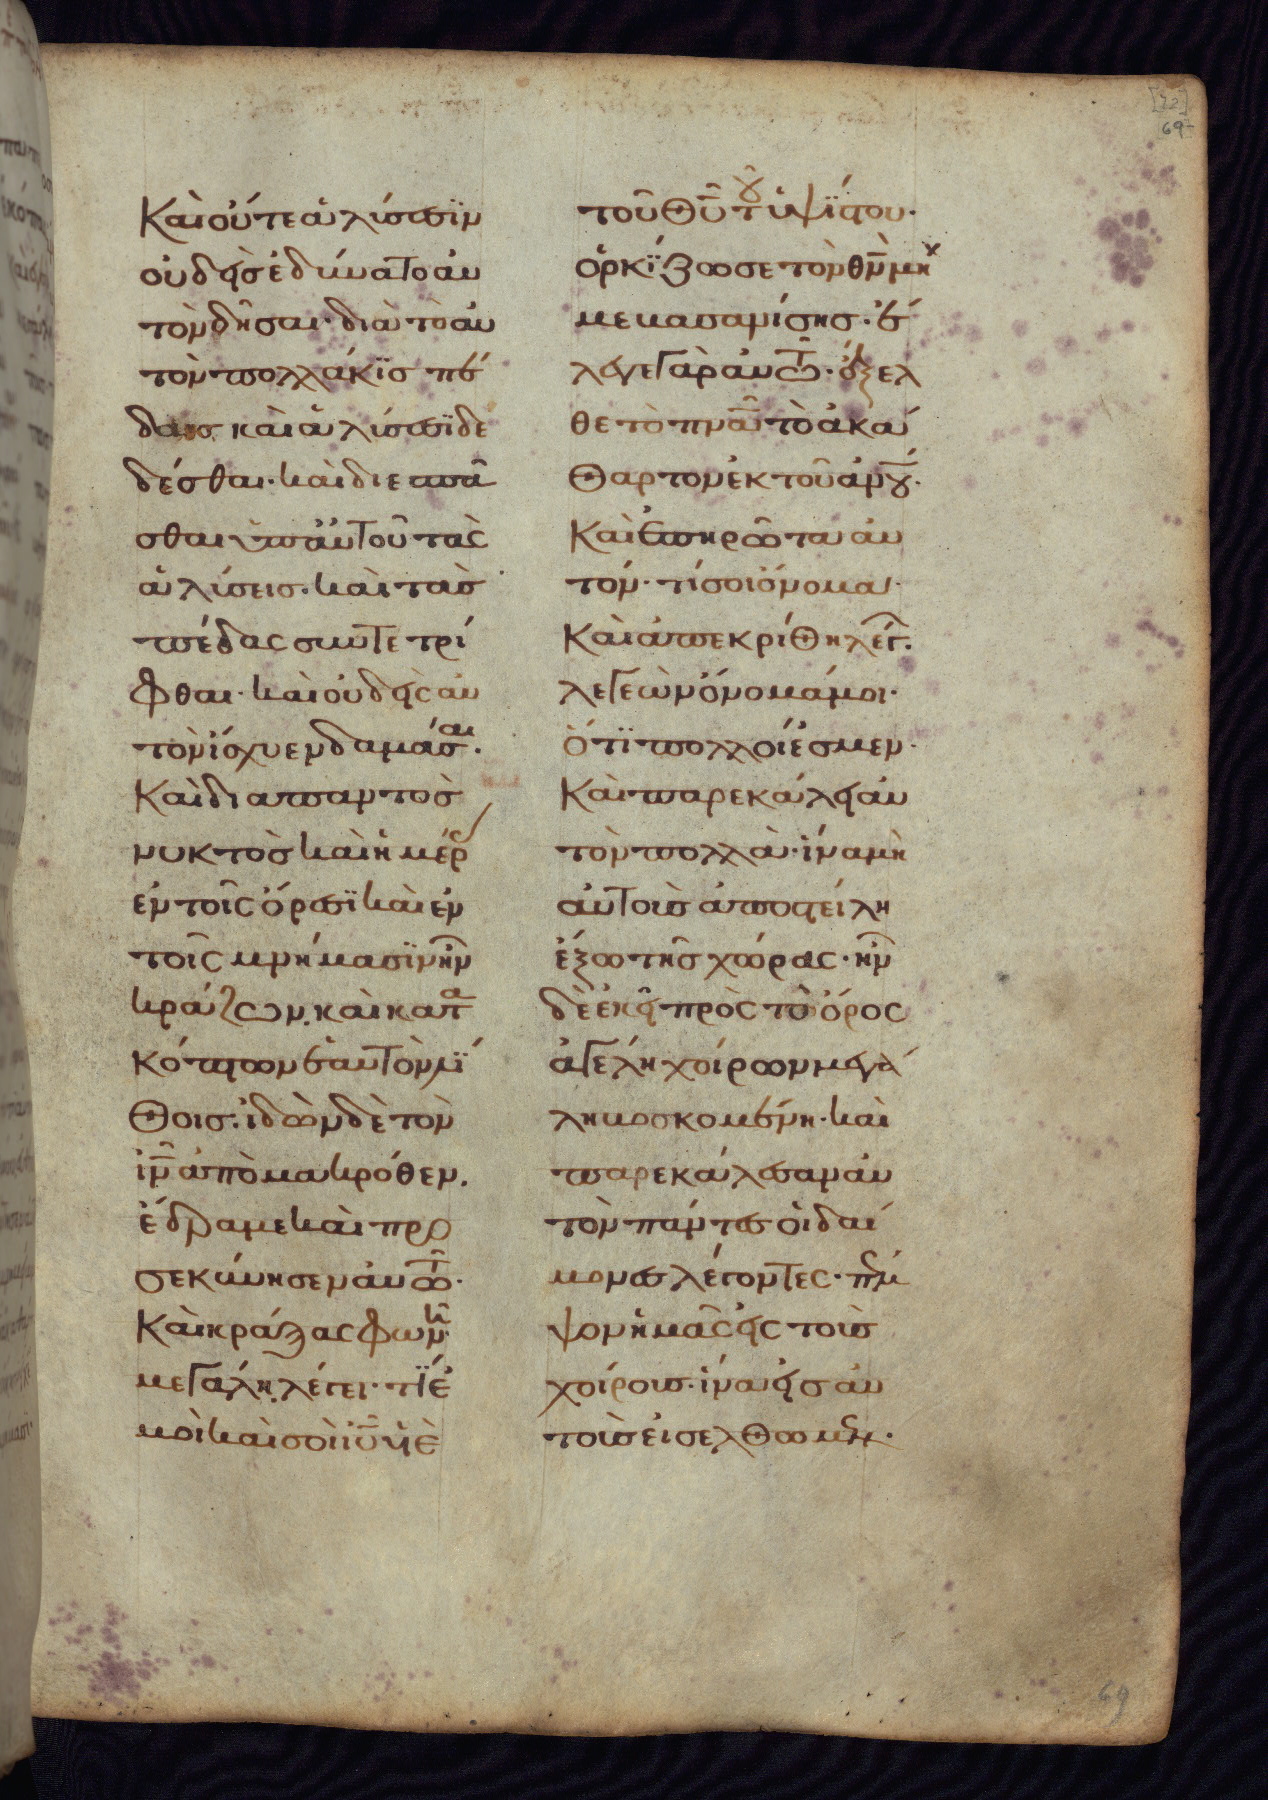 Καὶ οὔτε ἁλύσεσϊν
οὐδεὶς ἐδύνατο αὐ
τὸν δῆσαι· διὰ τὸ αὐ
τὸν πολλάκϊς πέ
δαις καὶ ἁλύσεσϊ δε
δέσθαι· καὶ διεσπᾶ
σθαι ὑπ' αὐτοῦ τὰς
ἁλύσεις· καὶ τὰς
πέδας συντετρί
φθαι· καὶ οὐδεὶς αὐ
τὸν ἴσχυεν δαμάσαι·
Καὶ διαπαντὸς
νυκτὸς καὶ ἡμέρ
ἐν τοῖς ὄρεσϊ καὶ ἐν
τοῖς μνήμασϊν ἦν
κράζων· καὶ κατα
κόπτων ἑαυτὸν λϊ
θοις· ἰδὼν δὲ τὸν
ἰν̅ ἀπὸ μακρόθεν·
ἔδραμε καὶ προ
σεκύνησεν αὐτῶ·
Καὶ κράξας φωνῆ
μεγάλη, λέγει· τί ἐ
μοὶ καὶ σοὶ ἰυ̅ υἱὲ
τοῦ θυ̅ τοῦ ὑψίστου·
ὁρκΐζω σε τὸν θν̅ μή
με βασανίσης· ἔ
λεγε γὰρ αὐτῶ· ἔξελ
θε τὸ πνα̅ τὸ ἀκά
θαρτον ἐκ τοῦ ἀνου̅·
Καὶ ἐπηρώτα αὐ
τόν· τί σοι ὄνομα·
Καὶ ἀπεκρίθη λέγ·
λεγεὼν ὄνομά μοι·
Ὅτϊ πολλοί ἐσμεν·
Καὶ παρεκάλει αὐ
τὸν πολλὰ· ἵνα μὴ
αὐτοὺς ἀποστείλη
ἔξω τῆς χώρας· ἦν
δὲ ἐκεῖ πρὸς τὸ ὄρος
ἀγέλη χοίρων μεγά
λη βοσκομένη· καὶ
παρεκάλεσαν αὐ
τὸν πάντες οἱ δαί
μονες λέγοντες· πέμ
ψον ἡμᾶς εἰς τοὺς
χοίρους· ἵνα εἰς αὐ
τοὺς εἰσέλθωμεν·
[72]
69
69